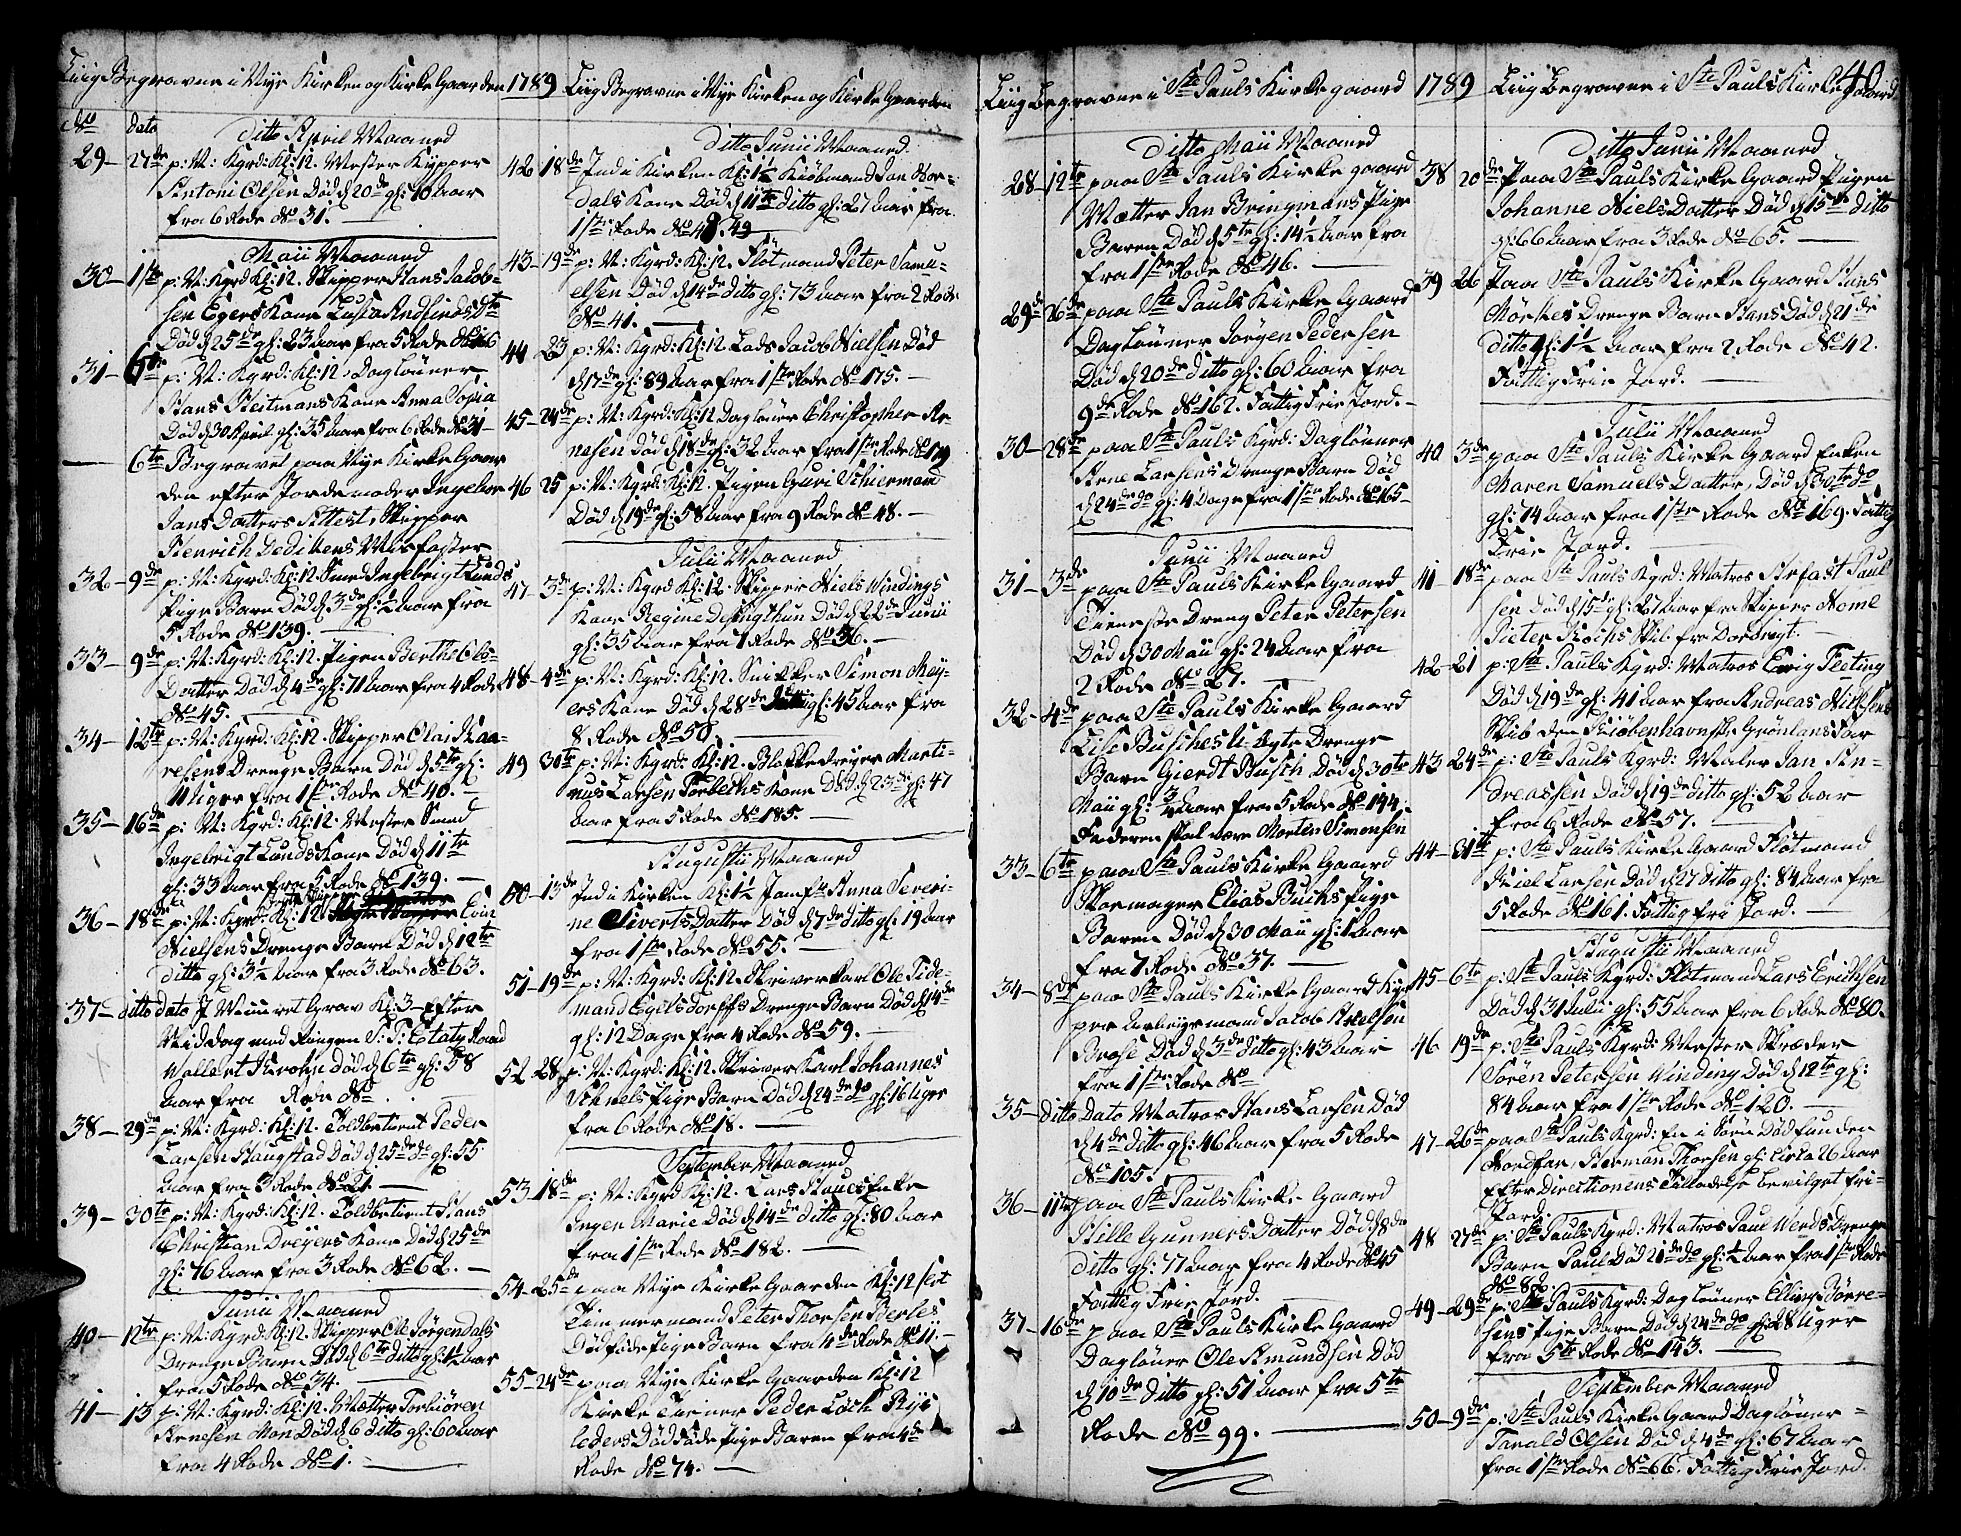 Liig Begravne i Nye Kirken og Kirke Gaarden 1789
No dato
Ditto April Maaned
29 - 27de p: N: Kgrd: Kl: 12. Mester Kypper
Antoni Olsen Død d 20de gl: 70 aar
fra 6 Rode No 31.
Maii Maaned
30 - 1ste p: N: Kgrd Kl: 12. Skipper Hans Jacob-
sen Egers Kone Lusia
Død d 25de gl: 23 aar fra 5 Rode No 166
31 - 6te p: N: Kgrd: Kl: 12. Dagløner
Hans Heitmans Kone Anna Sopia
Død d 30 April gl: 35 aar fra 6 Rode No 31
- 6te Begravet paa Nye Kirke Gaar
den efter Jordemoder Ingebor
Jans Datters Attest, Skipper
Henrich Dedikens Misfoster
32 - 9de p: N: Kgrd: Kl: 12. Smed Ingebrigt Lunds
Pige Barn Død d 3de gl: 1/2 aar fra
5 Rode No 139.
33 - 9de p: N: Kgrd: Kl: 12. Pigen Berthe Ols-
Datter Død d 4de gl: 71 aar fra 4 Rode
No 45.
34 - 12te p: N: Kgrd: Kl: 12. Skipper Clai Haa-
resens Drenge Barn Død d 5te gl:
11 uger fra 1ste Rode No 40.
35 - 16de p: N: Kgrd: Kl: 12. Mester Smed
Ingebrigt Lunds Kone Død d 11te
gl: 33 aar fra 5 Rode No 139.
36 - 18de p: N: Kgrd: Kl: 12 Enn
Nielsens Drenge Barn Død d 12te
ditto gl: 3 1/2 aar fra 3 Rode No 63.
37 - ditto dato I Muuret Grav Kl: 3 Efter
Middag med Ringen S: T: Etatz Raad
Wollert Krohn Død d 6te gl: 58
aar fra Rode No
38 - 29de p: N: Kgrd: Kl: 12. Toldbetient Peder
Larsen Haugstad Død d 25de do gl: 55
aar fra 3 Rode No 21
39 - 30te p: N: Kgrd: Kl: 12. Toldbetient Hans
Christian Dreyers Kone Død d 25de
gl: 76 aar fra 3 Rode No 62.
Junii Maaned
40 - 12te p: N: Kgrd: Kl: 12. Skipper Ole Jørgen Dals
Drenge Barn Død d 6te ditto gl: 1/2 aar
fra 5 Rode No 34.
41 - 13 p: N: Kgrd: Kl: 12. Mætter Torbiören
Arnesen Mon Død d 6 ditto gl: 60 aar
fra 4 Rode No 1.
Liig Begravne i Nye Kirken og Kirke Gaarden
Ditto Junii Maaned
42 18de Ind i Kirken Kl: 1 1/2 Kiøbmand Jan
dals Kone Død d 11te ditto gl: 27 aar fra
1ste Rode No 48. 49
43 - 19de p: N: Kgrd: Kl: 12. Flötmand Peter Samu-
elsen Død d 14de ditto gl: 73 aar fra 2 Rode
No 41.
44 23 p: N: Kgrd: Kl: 12 Lods Jacob Nielsen Død
d 17de gl: 89 aar fra 1ste Rode No 175.
45 - 24de p: N: Kgrd: Kl: 12 Dagløner Christopher Ar
nesen Død d 18de gl: 32 aar fra 1ste Rode No 179
46 25 p: N: Kgrd: Kl: 12. Pigen Guri Schierman
Død d 19de gl: 58 aar fra 9 Rode No 48.
Julii Maaned
47 - 3de p: N: Kgrd Kl: 12. Skipper Niels Windings
Kone Regine Desingthun Død d 22de Junii
gl: 35 aar fra 1 Rode No 56.
48 - 4de p: N: Kgrd: Kl: 12. Snikker Simon Mey-
ers Kone Død d 28de gl: 45 aar fra
8 Rode No 50.
49 30te p: N: Kgrd: Kl: 12. Blokkedreyer Marti-
nus Larsen Torbechs Kone Død d 23de gl: 47
aar fra 5 Rode No 185.
Augustii Maaned
50 - 13de Ind i Kirken Kl: 1 1/2 Jomfr: Anna Severi-
ne Siverts Datter Død d 7de ditto gl: 19 aar
fra 1ste Rode No 55.
51 - 19de p: N: Kgrd: Kl: 12. Skriverkarl Ole Tide-
mand Egilsdorffs Drenge Barn Død d 14de
gl: 12 Dage fra 4 Rode No 59.
52 28 p: N: Kgrd: Kl: 12. Skriver Karl Johannes
Schnels Pige Barn Død d 24de do gl: 16 Uger
fra 6 Rode No 18.
September Maaned
53 - 18de p: N: Kgrd Kl: 12. Lars Haues Enke
Ingen Marie Død d 14de ditto gl: 80 aar
fra 1ste Rode No 182.
54 - 25de paa Nye Kirke Gaarden Kl: 12 slet
Timmermand Peter Thorsen Berses
Dødføde Pige Barn fra 4de Rode No 11.
55 - 24de paa Nye Kirke Gaarden Kl: 12
Kirke Tiener Peder Loch Ryi
leders Dødføde Pige Baren fra 4de
Rode No 74.
Liig Begravne i Ste Pauls Kirke gaard 1789
Ditto Maii Maaned
28 - 12te paa Ste Pauls Kirke gaard
Mætter Jan Bringmans Pige
Baren Død d 5te gl: 14 1/2 aar fra
fra 1ste Rode No 46.
29de 26de paa Ste Pauls Kirke Gaard
Dagløner Jørgen Pedersen
Død d 20de ditto gl: 60 aar fra
9de Rode No 162. Fattig Frie Jord.
30 - 28de paa Ste Pauls Kgrd: Dagløner
Arne Larsens Drenge Barn Død
d 24de do gl: 4 Dage fra 1ste Rode No 165
Junii Maaned
31 - 3de paa Ste Pauls Kirke Gaard
Tieneste Dreng Peter Petersen
Død d 30 Maii gl: 24 aar fra
2 Rode No 27.
32 - 4de paa Ste Pauls Kirke Gaard
Lise Busches U-Egte Drenge
Barn Gierdt Busch Død d 30te
Maii gl: 3/4 aar fra 5 Rode No 144.
Faderen skal være Morten Simonsen
33 - 6te paa Ste Pauls Kirke Gaard
Skomager Elias Buchs Pige
Baren Død d 30 Maii gl: 1 aar
fra 7 Rode No 37.
34 - 8de paa Ste Pauls Kirke Gaard Kyp
per Arbeyersmand Jacob Axelsen
Brose Død d 3de ditto gl: 43 aar
fra 1ste Rode No
35 - Ditto Dato Matros Hans Larsen Død
d 4de ditto gl: 46 aar fra 5 Rode
No 105.
36 - 11te paa Ste Pauls Kirke Gaard
Hille Gunners Datter Død d 8de
ditto gl: 71 aar fra 4 Rode No 45
Fattig Frie Jord.
37 - 16de paa Ste Pauls Kirke Gaard
Dagløner Ole Amundsen Død
d 10de ditto gl: 51 aar fra 5te
Rode No 99.
Liig Begravne i Ste Pauls Kirke Gaard
40
Ditto Junii Maaned
38 20de Paa Ste Pauls Kirke Gaard Pigen
Johanne Niels Datter Død d 15de ditto
gl: 66 aar fra 3 Rode No 65.
39 26 Paa Ste Pauls Kirke Gaard Hans
Mörches Drenge Barn Hans Død d 21de
ditto gl: 1 1/2 aar fra 2 Rode No 42.
Fattig Frie Jord.
Julii Maaned
40 3de paa Ste Pauls Kirke Gaard Enken
Maren Samuels Datter, Død d 30te do
gl: 74 aar fra 1ste Rode No 169. Fattig
Frie Jord.
41 18de paa Ste Pauls Kgrd: Matros Arfast Paul
sen Død d 15de gl: 27 aar fra Skipper Nome
Pieter Kochs Skib fra Dordrigt.
42 - 21 p: Ste Pauls Kgrd: Matros Ewig Feeting
Død d 19de gl: 41 aar fra Andreas Nielsens
Skib den Kiöbenhavnske Grønlans Far
43 24de p: Ste Pauls Kgrd: Maler Jan An-
dreassen Død d 19de ditto gl: 52 aar
fra 6 Rode No 57.
44 - 31te p: Ste Pauls Kirke Gaard Flötmand
Niel Larsen Død d 27 ditto gl: 84 aar fra
5 Rode No 161. Fattig fri Jord.
Augustii Maaned
45 - 6te p: Ste Pauls Kgrd: Flötmand Lars Erichsen
Død d 31 Julii gl: 55 aar fra 6 Rode No 80.
46 19de p: Ste Pauls Kgrd: Mester Skræder
Sören Petersen Windeng Død d 12te gl:
84 aar fra 1ste Rode No 120.
47 - 26de paa Ste Pauls Kgrd: En i Søen Død funden
Nordfar, Herman Thorsen gl: Cirka 26 aar
Efter Directionens Tilladelse bevilget fri-
Jord.
48 27de p: Ste Pauls Kgrd: Matros Paul Werds Drenge
Barn Paul Død 21de do gl: 1/2 aar fra 1ste Rode
No 82.
49 - 29de p: Ste Pauls Kgrd: Dagløner Elling Börre-
sens Pige Barn Død d 24de do gl: 28 uger
fra 5te Rode No 143.
September Maaned
50 - 9de p: Ste Pauls Kirke Gaard Dagløner
Tarald Olsen Død d 4de gl: 67 aar
fra 1ste Rode No 66. Fattig Frie Jord.